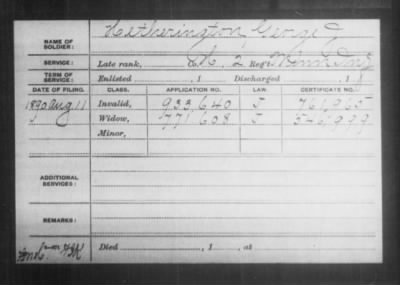 NAME OF SOLDIER: Hetherington, George J
SERVICE: Late rank, Co. K, 2 Reg't Minn Inf
TERM OF SERVICE: Enlisted , 1 Discharged , 1
DATE OF FILING. CLASS. APPLICATION NO. LAW. CERTIFICATE NO.
1890 Aug 11 Invalid, 933,640 J 761,965
Widow, 771,608 J 546,999
Minor,
ADDITIONAL SERVICES:
REMARKS:
Died , 1 , at